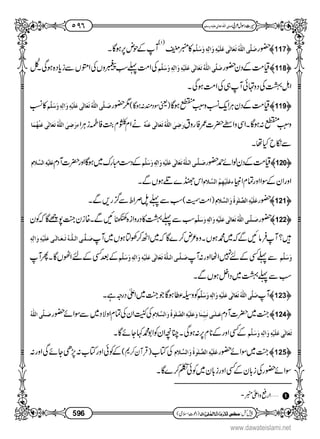 سیرتِ رسولِ عربی صَلَّی اللہُ تَعَالٰی عَلَیْہِ وَاٰلِہٖ وَسَلَّم ٥٩٦
﴿117﴾ حضور صَلَّی اللہُ تَعَالٰی عَلَیْہِ وَاٰلِہٖ وَسَلَّم کا منبر منیف (1) آپ کے حوض پر ہوگا۔
﴿118﴾ قیامت کے دن حضور صَلَّی اللہُ تَعَالٰی عَلَیْہِ وَاٰلِہٖ وَسَلَّم کی امت سب پہلے پیغمبروں کی امتوں سے زیادہ ہوگی۔ کل
اہل بہشت کی دو تہائی آپ ہی کی امت ہوگی۔
﴿119﴾ قیامت کے دن ہر ایک نسب و سبب منقطع ہوگا (یعنی سود مند نہ ہوگا) مگر حضور صَلَّی اللہُ تَعَالٰی عَلَیْہِ وَاٰلِہٖ وَسَلَّم کا نسب
و سبب منقطع نہ ہوگا۔ اسی واسطے حضرت عمر فاروق رَضِیَ اللہُ تَعَالٰی عَنْہ نے ام کلثوم بنت فاطمہ زہرا رَضِیَ اللہُ تَعَالٰی عَنْہُمَا
سے نکاح کیا تھا۔
﴿120﴾ قیامت کے دن لوائے حمد حضور صَلَّی اللہُ تَعَالٰی عَلَیْہِ وَاٰلِہٖ وَسَلَّم کے دست مبارک میں ہوگا اور حضرت آدم عَلَیْہِ السَّلَام
اور ان کے سوا اور تمام انبیاء عَلَیْہِمُ السَّلَام اس جھنڈے تلے ہوں گے۔
﴿121﴾ حضور عَلَیْہِ الصَّلٰوۃُ وَالسَّلَام (امت سمیت) سب سے پہلے پل صراط سے گزریں گے۔
﴿122﴾ حضور صَلَّی اللہُ تَعَالٰی عَلَیْہِ وَاٰلِہٖ وَسَلَّم سب سے پہلے بہشت کا دروازہ کھٹکھٹائیں گے۔ خازن جنت پوچھے گا کہ کون
ہیں؟ آپ فرمائیں گے کہ میں محمد ہوں۔ وہ عرض کرے گا کہ میں اٹھ کر کھولتا ہوں میں آپ صَلَّی اللہُ تَعَالٰی عَلَیْہِ وَاٰلِہٖ
وَسَلَّم سے پہلے کسی کے لئے نہیں اٹھا اور نہ آپ صَلَّی اللہُ تَعَالٰی عَلَیْہِ وَاٰلِہٖ وَسَلَّم کے بعد کسی کے لئے اٹھوں گا۔ پھر آپ
سب سے پہلے بہشت میں داخل ہوں گے۔
﴿123﴾ آپ صَلَّی اللہُ تَعَالٰی عَلَیْہِ وَاٰلِہٖ وَسَلَّم کو وسیلہ عطا ہوگا جو جنت میں اعلیٰ درجہ ہے۔
﴿124﴾ جنت میں حضرت آدم عَلَیْہِ السَّلَام کی کنیت ان کی تمام اولاد میں سے سوائے حضور صَلَّی اللہُ
تَعَالٰی عَلَیْہِ وَاٰلِہٖ وَسَلَّم کے اور کسی کے نام پر نہ ہوگی۔ چنانچہ ان کو ابو محمد کہا جائے گا۔
﴿125﴾ جنت میں سوائے حضور عَلَیْہِ الصَّلٰوۃُ وَالسَّلَام کی کتاب (قرآن کریم) کے کوئی اور کتاب نہ پڑھی جائے گی اور نہ
سوائے حضور کی زبان کے کسی اور زبان میں کوئی تکلم کرے گا۔
596
www.dawateislami.net